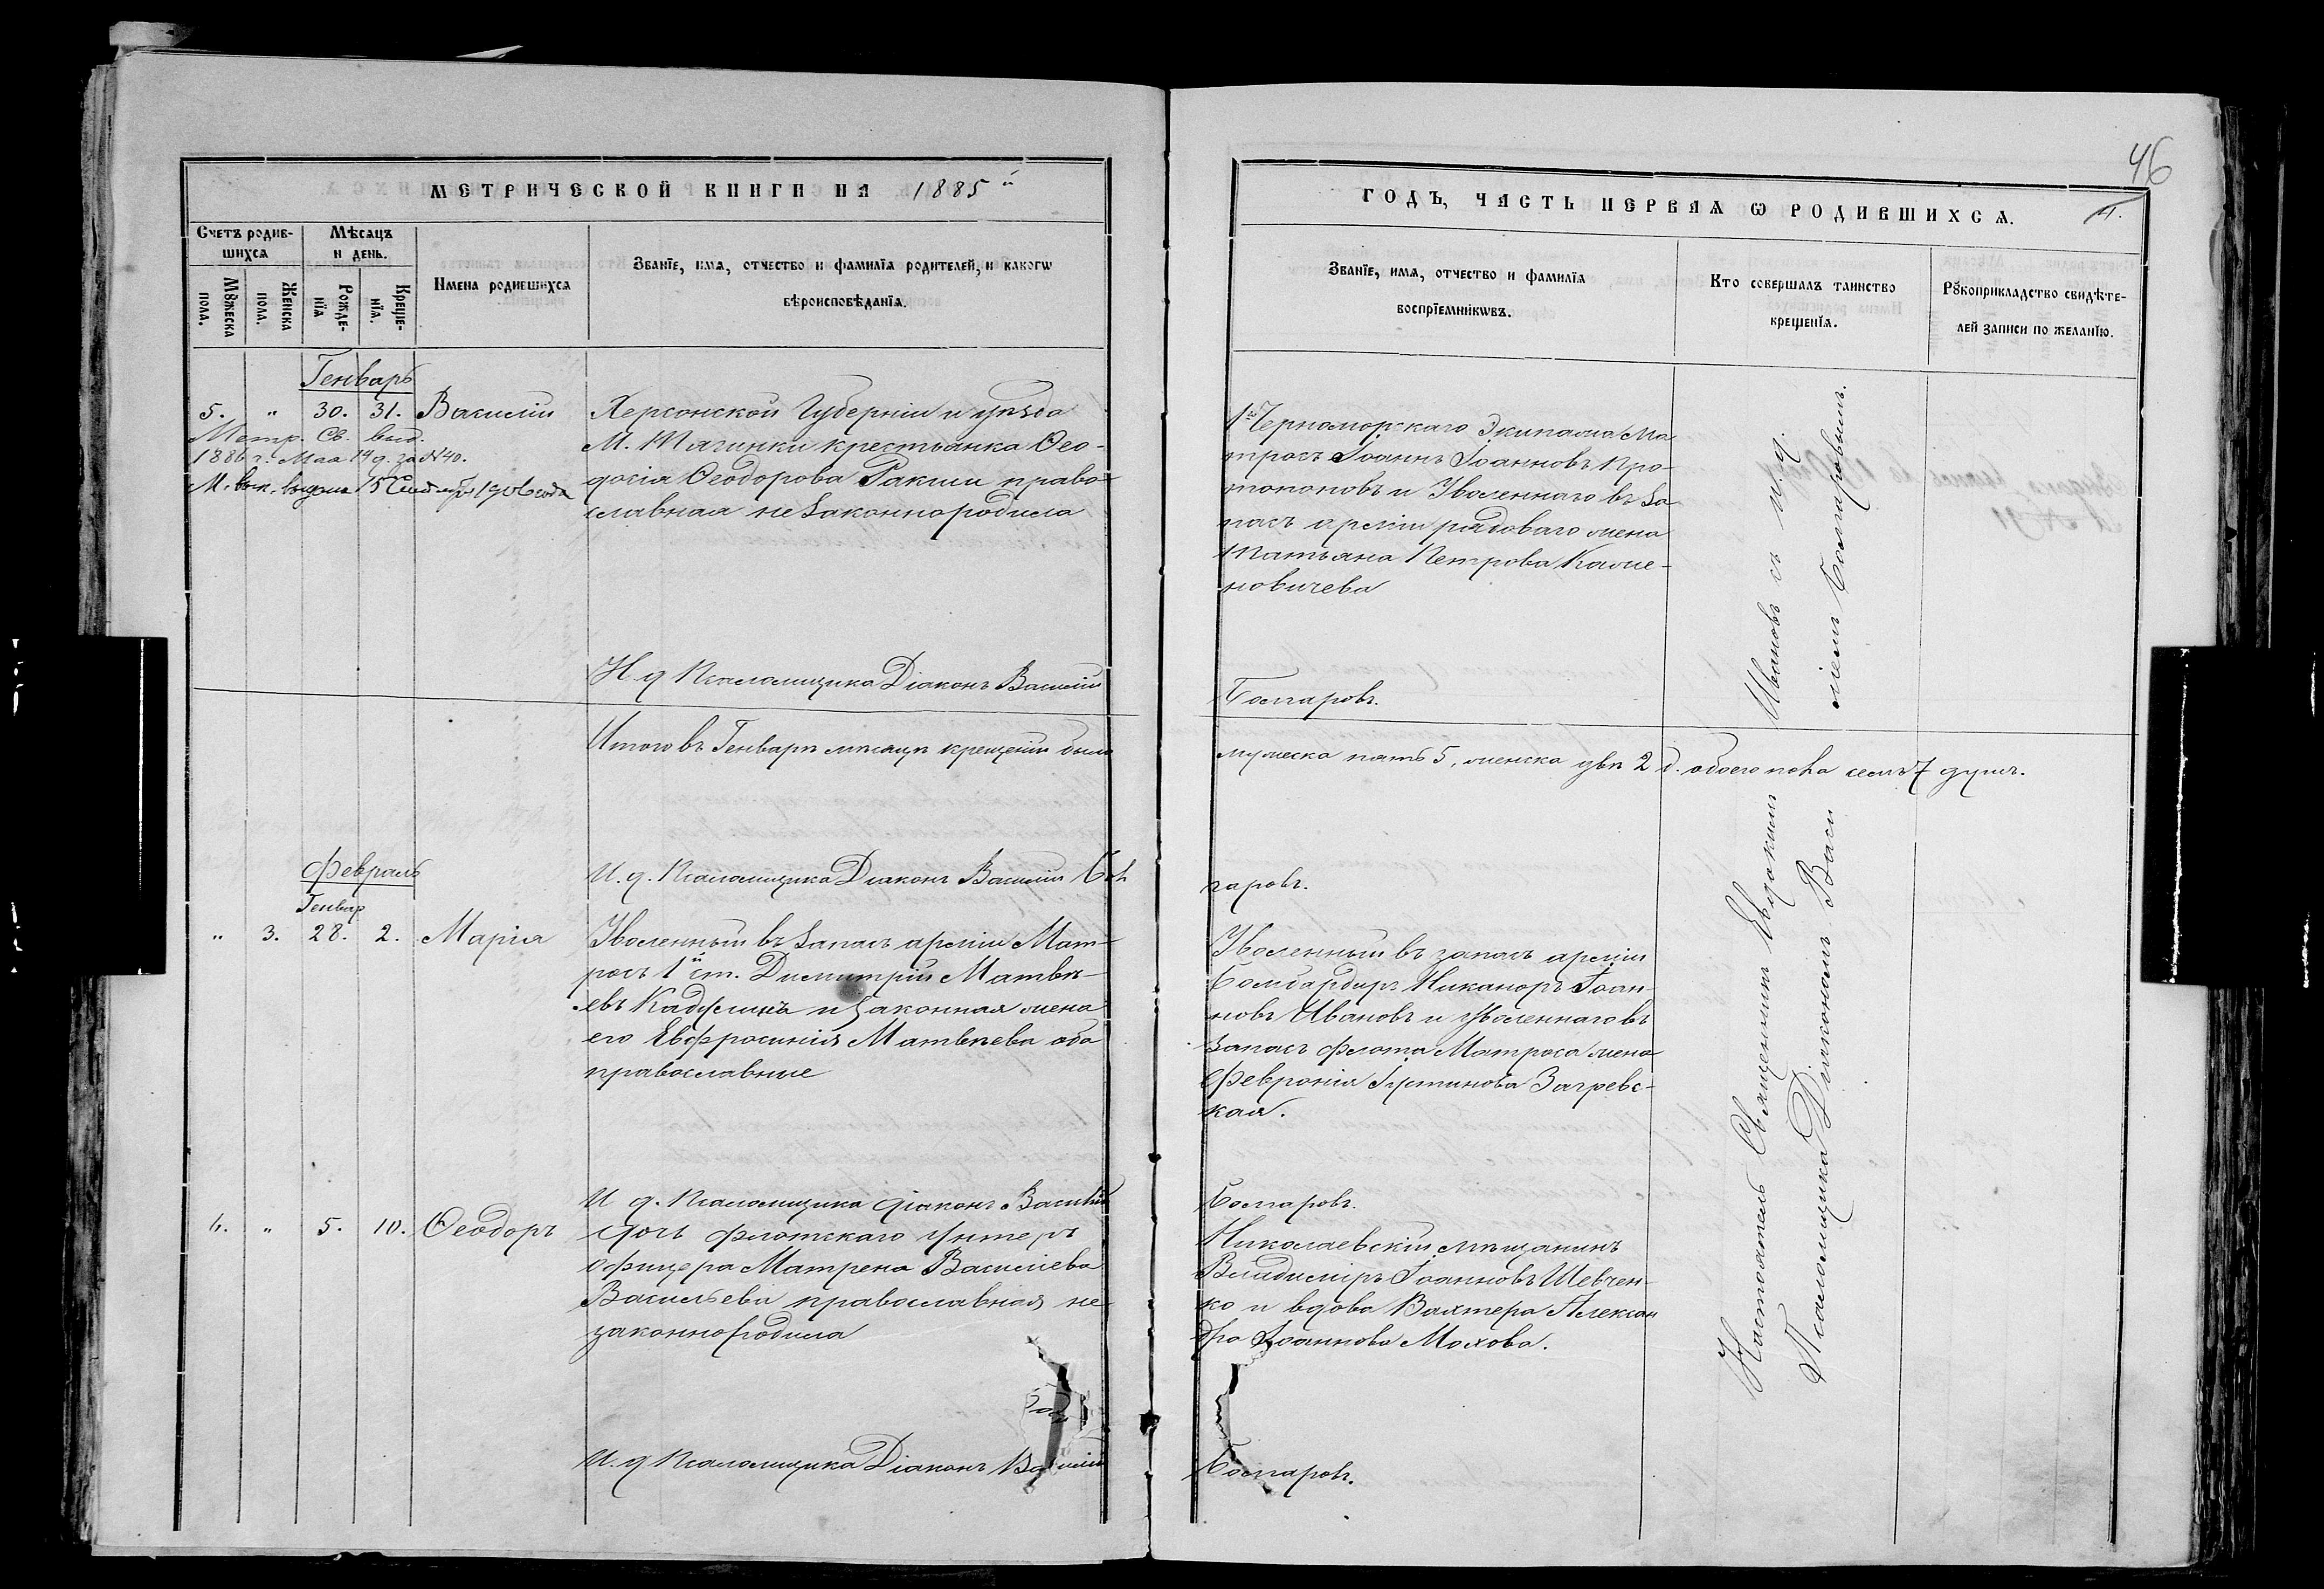 46
МЕТРИЧЕСКОЙ КНИГИ НА 1885й
ГОДЪ, ЧАСТЬ ПЕРВАЯ Ѡ РОДИВШИХСЯ.
Счетъ родив-
шихся
Мѣсяцъ
и день.
Мꙋжеска
пола.
Женска
пола.
Рожде-
нїя
Креще-
нїя.
Имена родившихся
Званїе, имя, отчество и фамилїя родителей, и какогѡ
вѣроисповѣданїя.
Званїе, имя, отчество и фамилїя
воспрїемникѡвъ.
Кто совершалъ таинство
крещенїя.
Рꙋкоприкладство свидѣте-
лей записи по желанїю.
Генварь
5. " 30. 31. Василій
Метр. Св. выд.
1886 г. Мая 14 д. за №40.
Херсонской Губерніи и уѣзда
М. Тягинки крестьянка Ѳео-
досія Ѳеодорова Ракши право-
славная незаконно родила
1го Черноморскаго Экипажа Ма
тросъ Іоаннъ Іоанновъ Про-
топоповъ и Уволеннаго въ За
пасъ арміи рядоваго жена
Татьяна Петрова Каме-
новичева
Ивановъ съ и. д.
ліемъ Болгаровымъ.
И д Псаломщика Діаконъ Василій
Болгаровъ.
Итого въ Генварѣ мѣсяцѣ крещеніи было
мужеска пять 5, женска двѣ 2 д. обоего пола семь 7 душъ.
И. д. Псаломщика Діаконъ Василій Бол
гаровъ.
Февраль
Генвар
" 3. 28. 2. Марія
Уволенный въ Запасъ арміи Мат-
росъ 1й ст. Димитрій Матвѣ-
евъ и законная жена
его Евфросинія Матвѣева оба
православные
Уволенный въ запасъ арміи
Бомбардиръ Никаноръ Іоан-
новъ Ивановъ и уволеннаго въ
Запасъ флота Матроса жена
Февронія Іустинова Загревс-
кая.
Настоятель Священникъ Евдокимъ
Псаломщика Діакономъ Васи
И д. Псаломщика діаконъ Василій
Болгаровъ.
6. " 5. 10. Ѳеодоръ
дочь флотскаго унтеръ
офицера Матрена Василіева
Васильева православная не
законно родила
Николаевскій мѣщанинъ
Владиміръ Іоанновъ Шевчен-
ко и вдова Вахтера Алексан
дра Іоаннова Махова.
И. д Псаломщика Діаконъ Василій
Болгаровъ.